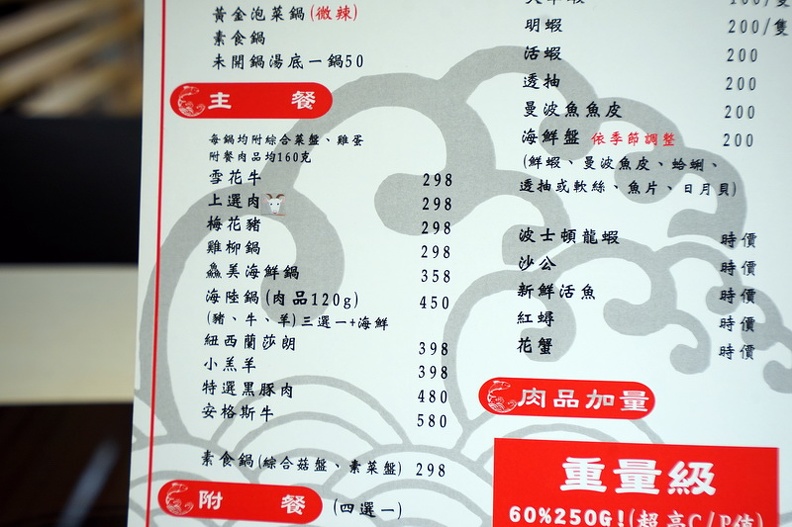 黃金泡菜鍋(微辣)
素食鍋
未開鍋湯底一鍋50
主 餐
每鍋均附綜合菜盤、雞蛋
附餐肉品均160克
雪花牛 298
上選肉 298
梅花豬 298
雞柳鍋 298
鱻美海鮮鍋 358
海陸鍋(肉品120g) 450
(豬、牛、羊)三選一+海鮮
紐西蘭莎朗 398
小羔羊 398
特選黑豚肉 480
安格斯牛 580
素食鍋(綜合菇盤、素菜盤) 298
附 餐 (四選一)
明蝦 200/隻
活蝦 200
透抽 200
曼波魚魚皮 200
海鮮盤 依季節調整 200
(鮮蝦、曼波魚皮、蛤蜊、
透抽或軟絲、魚片、日月貝)
波士頓龍蝦 時價
沙公 時價
新鮮活魚 時價
紅蟳 時價
花蟹 時價
肉品加量
重量級
60%250G!(超高C/P值)